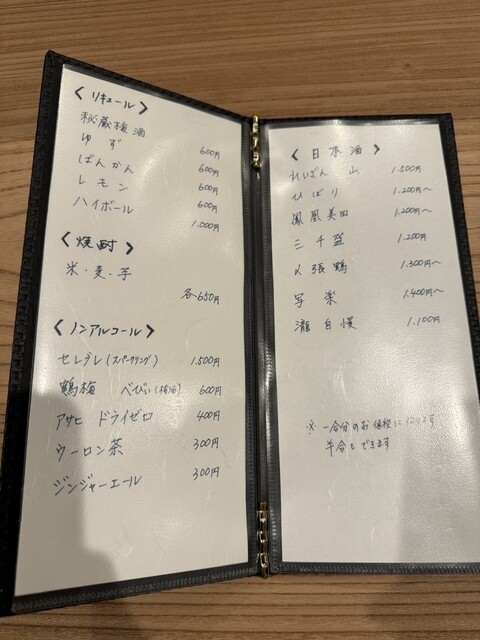 < リキュール >
秘蔵梅酒 600円
ゆず 600円
ばんかん 600円
レモン 600円
ハイボール 1.000円
< 焼酎 >
米・麦・芋 各650円
< ノンアルコール >
セレブレ(スパークリング) 1.500円
鶴梅 べびぃ(梅酒) 600円
アサヒ ドライゼロ 400円
ウーロン茶 300円
ジンジャーエール 300円
< 日本酒 >
れいざん 山 1.500円
ひばり 1.200円〜
鳳凰美田 1.200円〜
三千盛 1.200円
〆張鶴 1.300円〜
写楽 1.400円〜
瀧自慢 1.100円
※ 一合分のお値段になります
半合もできます